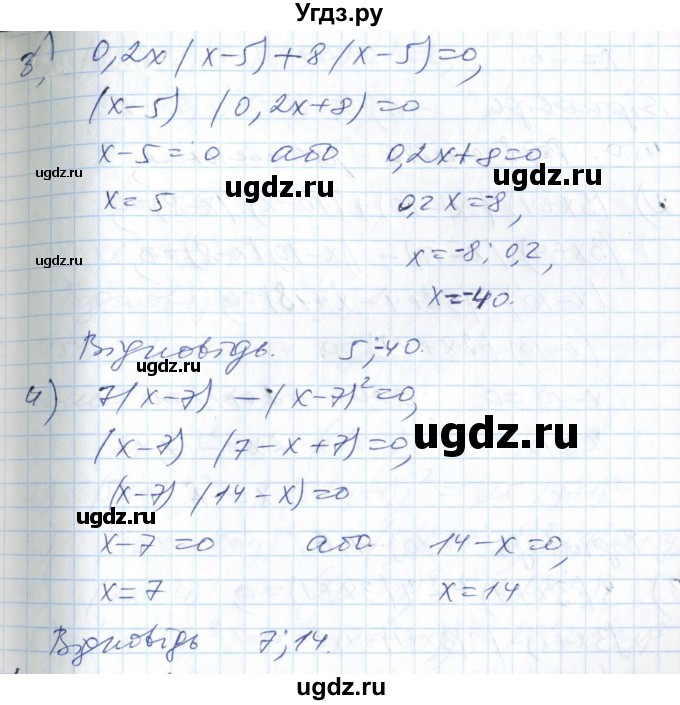 Угдз.ру
3) 0,2x(x-5)+8(x-5)=0,
(x-5) (0,2x+8)=0
x-5=0 або 0,2x+8=0
ugdz.ru
ugdz.ru
ugdz.ru
x=5 0,2x=-8,
ugdz.ru
x=-8:0,2,
x=-40.
Відповідь. 5;-40.
ugdz.ru
4) 7(x-7)-(x-7)²=0,
(x-7) (7-x+7)=0,
ugdz.ru
(x-7) (14-x)=0
ugdz.ru
x-7=0 або 14-x=0,
x=7 x=14
Відповідь 7;14.
ugdz.ru
ugdz.ru